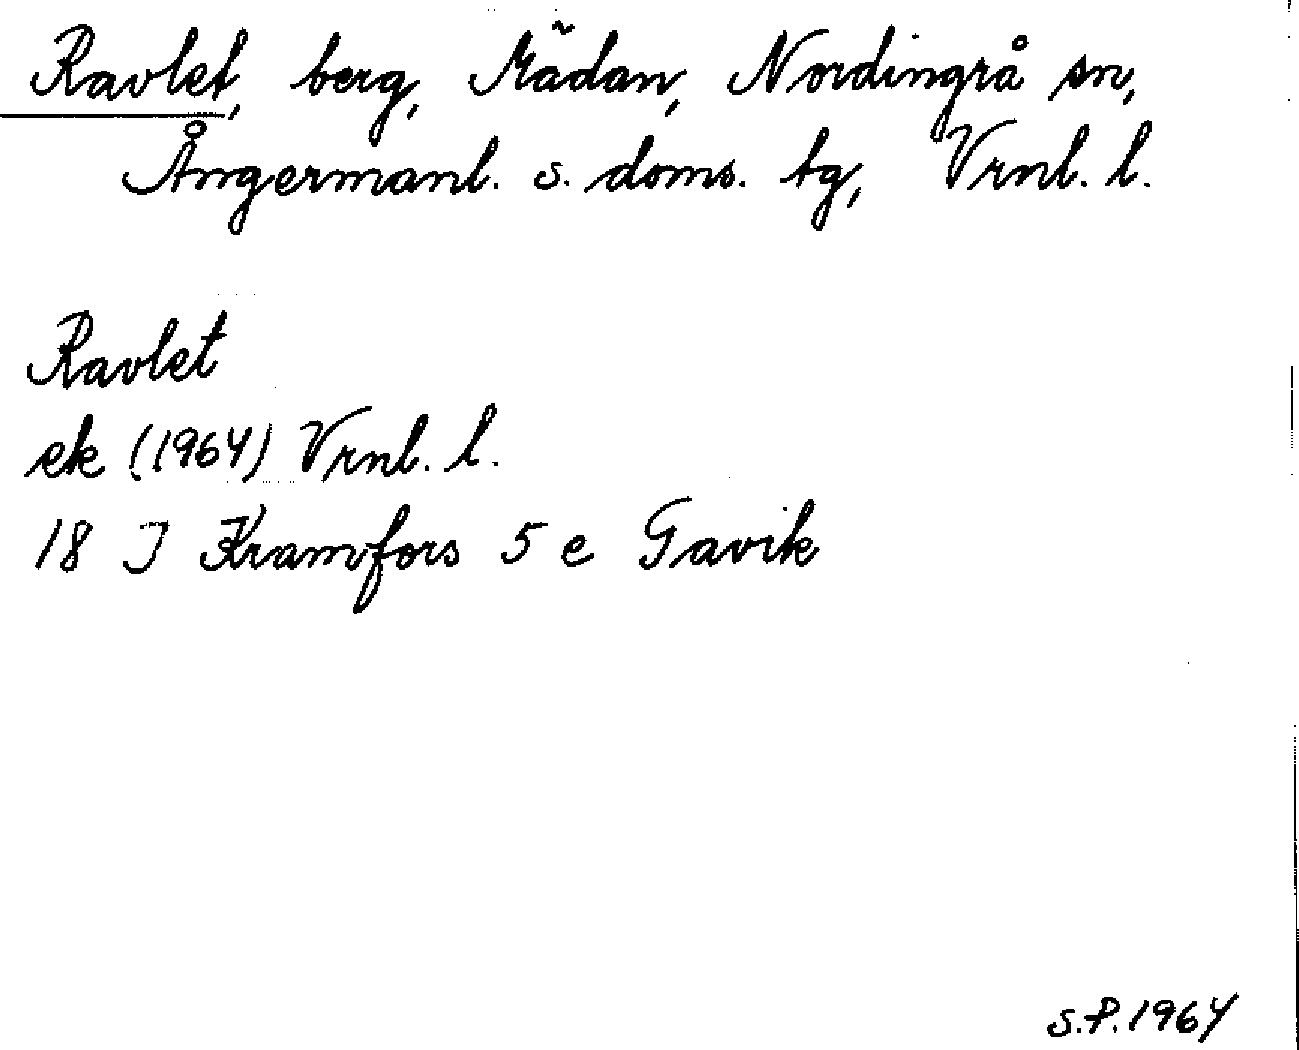 Ravlet, berg, Mädan, Nordingrå sn,
Ångermanl. s. doms. tg, Vrnl. l.
Ravlet
ek (1964) Vrnl. l.
18 I Kramfors 5 e Gavik
S.P. 1964